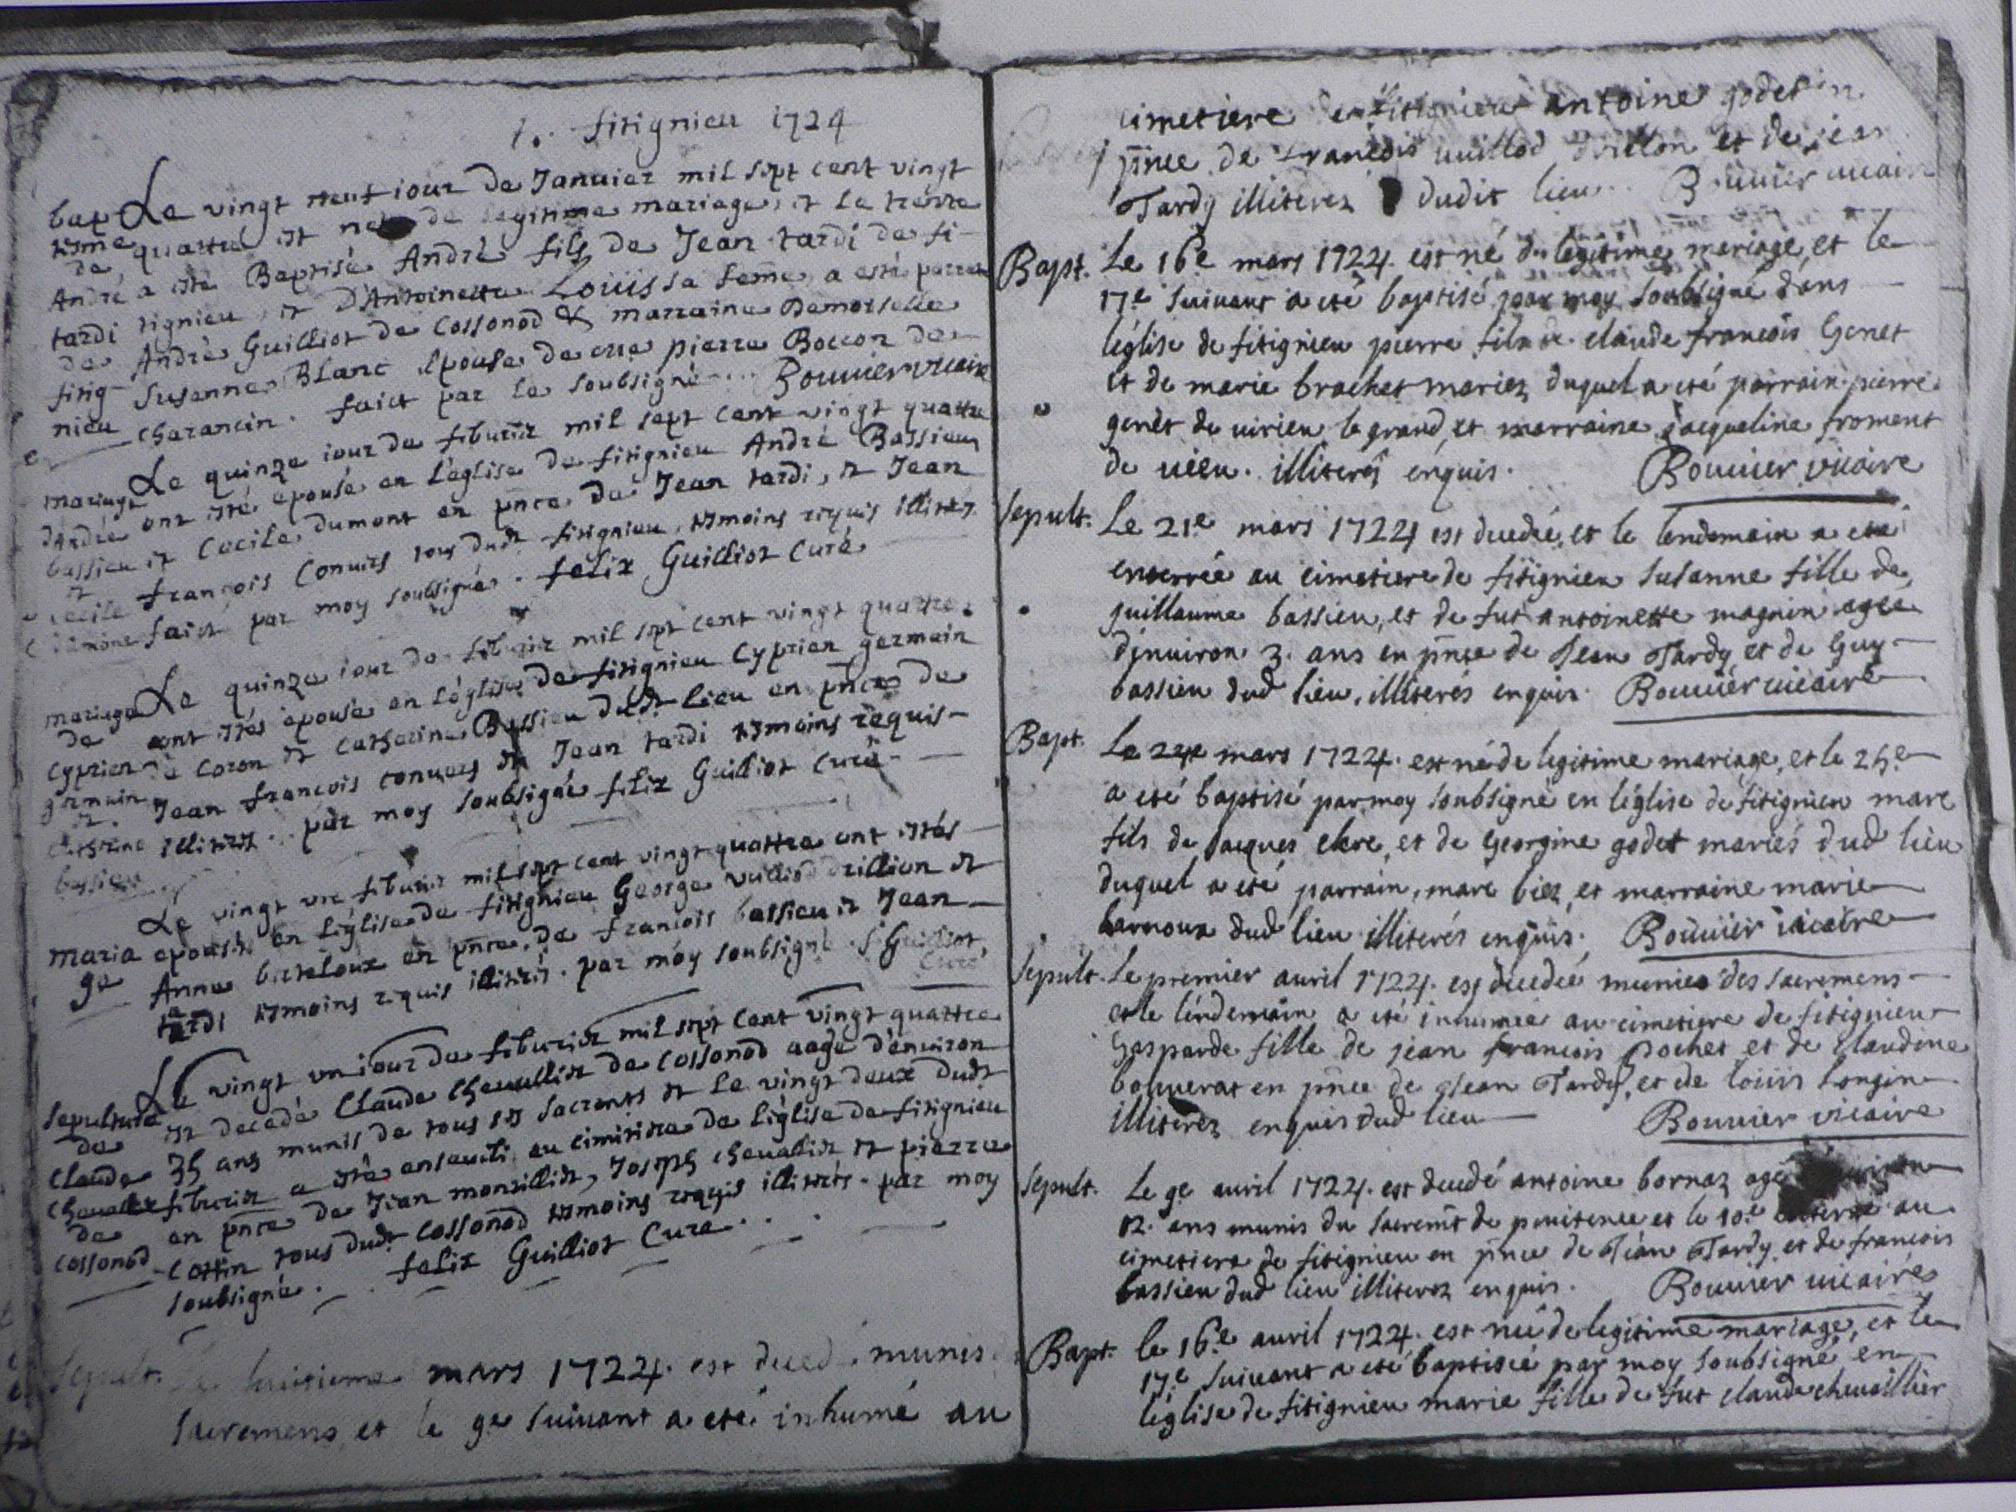 1. fitignieu 1724
bap Le vingt neuf iour de Janvier mil sept cent vingt
tesme quattre est né de legitime mariage, et le trente
de
André a esté Baptisé André fils de Jean tardi de fi-
tardi tignieu, et d'Antoinette Louis sa feme, a esté parrain
de André Guilliot de Cossonod & marraine Damoiselle
fitig- Susanne Blanc épouse de pierre Boccon de
nieu charancin. faict par le soubsigné... Bouvier vicaire
mariage Le quinze iour de feburier mil sept cent vingt quattre
d'André ont esté epousé en l'église de fitignieu André Bassieu
bassieu et Cecile dumont en pnce de Jean tardi, et Jean
et françois Convers tous dudt fitignieu, tesmoins requis illiters
cecile
dumont faict par moy soubsigné. felix Guilliot Curé
mariage Le quinze iour de feburier mil sept cent vingt quattre.
de ont estés épousé en l'église de fitignieu Cyprien germain
Cyprien de Coron et Catherine Bassieu dudt lieu en pnce de
germain Jean françois convers et Jean tardi tesmoins requis-
et
illiters.. par moy soubsigné felix Guilliot Curé
bassieu
Le vingt une feburier mil sept cent vingt quattre ont estés
maria épousés en l'église de fitignieu George vulliod drillion et
ge Anne berteloux en pnce, de francois bassieu et Jean
tardi tesmoins requis illiters. par moy soubsigné. f Guilliot
Curé
Le vingt un iour de feburier mil sept cent vingt quattre
sepulture est decedé Claude Chevallier de Cossonod aagé d'environ
de
Claude 35 ans munis de tous ses sacrents et le vingt deux dudt
Chevallier feburier a esté enseveli au cimitiere de l'église de fitignieu
de en pnce de Jean monvillier, Joseph chevallier et pierre
cossonod Cottin tous dudt Cossonod tesmoins requis illiters. par moy
soubsigné. felix Guilliot Curé.
Sepult. Le huitieme mars 1724. est decedé munis
sacremens, et le 9e suivant a eté inhumé au
cimetiere de fitignieu antoine godet en
pnce de francois vuillod drillon et de jean
Tardy illiterez dudit lieu. Bouvier vicaire
Bapt. Le 16e mars 1724. est né de légitime mariage, et le
17e suivant a eté baptisé par moy soubsigné dans
l'église de fitignieu pierre fils de claude françois Genet
et de marie brachet mariez duquel a eté parrain pierre
genet de virieu le grand, et marraine jacqueline froment
de vieu. illiterés enquis. Bouvier vicaire
Sepult. Le 21e mars 1724 est decedée, et le lendemain a eté
enterrée au cimetiere de fitignieu Susanne fille de
guillaume bassieu, et de fut antoinette magnin agée
d'environ 3. ans en pnce de Jean Tardy et de Guy
bassieu dud lieu, illiterés enquis. Bouvier vicaire
Bapt. Le 24e mars 1724. est né de legitime mariage, et le 25e
a eté baptisé par moy soubsigné en l'église de fitignieu marc
fils de jacques clerc, et de Georgine godet mariés dud lieu
duquel a eté parrain, marc biez, et marraine marie
barnoux dud lieu illiterés enquis. Bouvier vicaire
Sepult. Le premier avril 1724. est decedée munie des sacremens
et le lendemain a eté inhumée au cimetiere de fitignieu
Gasparde fille de jean francois pochet et de claudine
bouverat en pnce de Jean Tardy, et de loüis longin
illiterez enquis dud lieu Bouvier vicaire
Sepult. Le 9e avril 1724. est decedé antoine bornaz agé d'environ
12. ans munis du sacremt de penitence et le 10e enterré au
cimetiere de fitignieu en pnce de Jean Tardy, et de francois
bassieu dud lieu illiterez enquis. Bouvier vicaire
Bapt. le 16e avril 1724. est née de legitime mariage, et le
17e suivant a eté baptisée par moy soubsigné en
l'église de fitignieu marie fille de fut claude chevallier